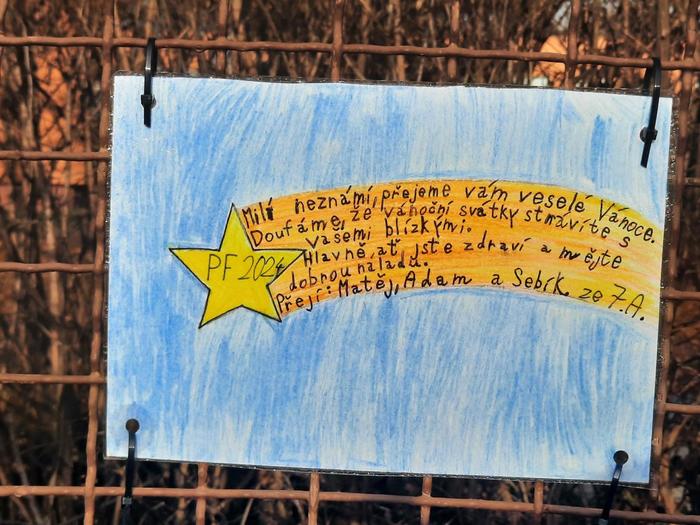 PF 2024
Milí neznámí, přejeme vám veselé Vánoce.
Doufáme, že vánoční svátky strávíte s
vašemi blízkými.
Hlavně, ať jste zdraví a mějte
dobrou náladu.
Přejí: Matěj, Adam a Sebík ze 7.A.